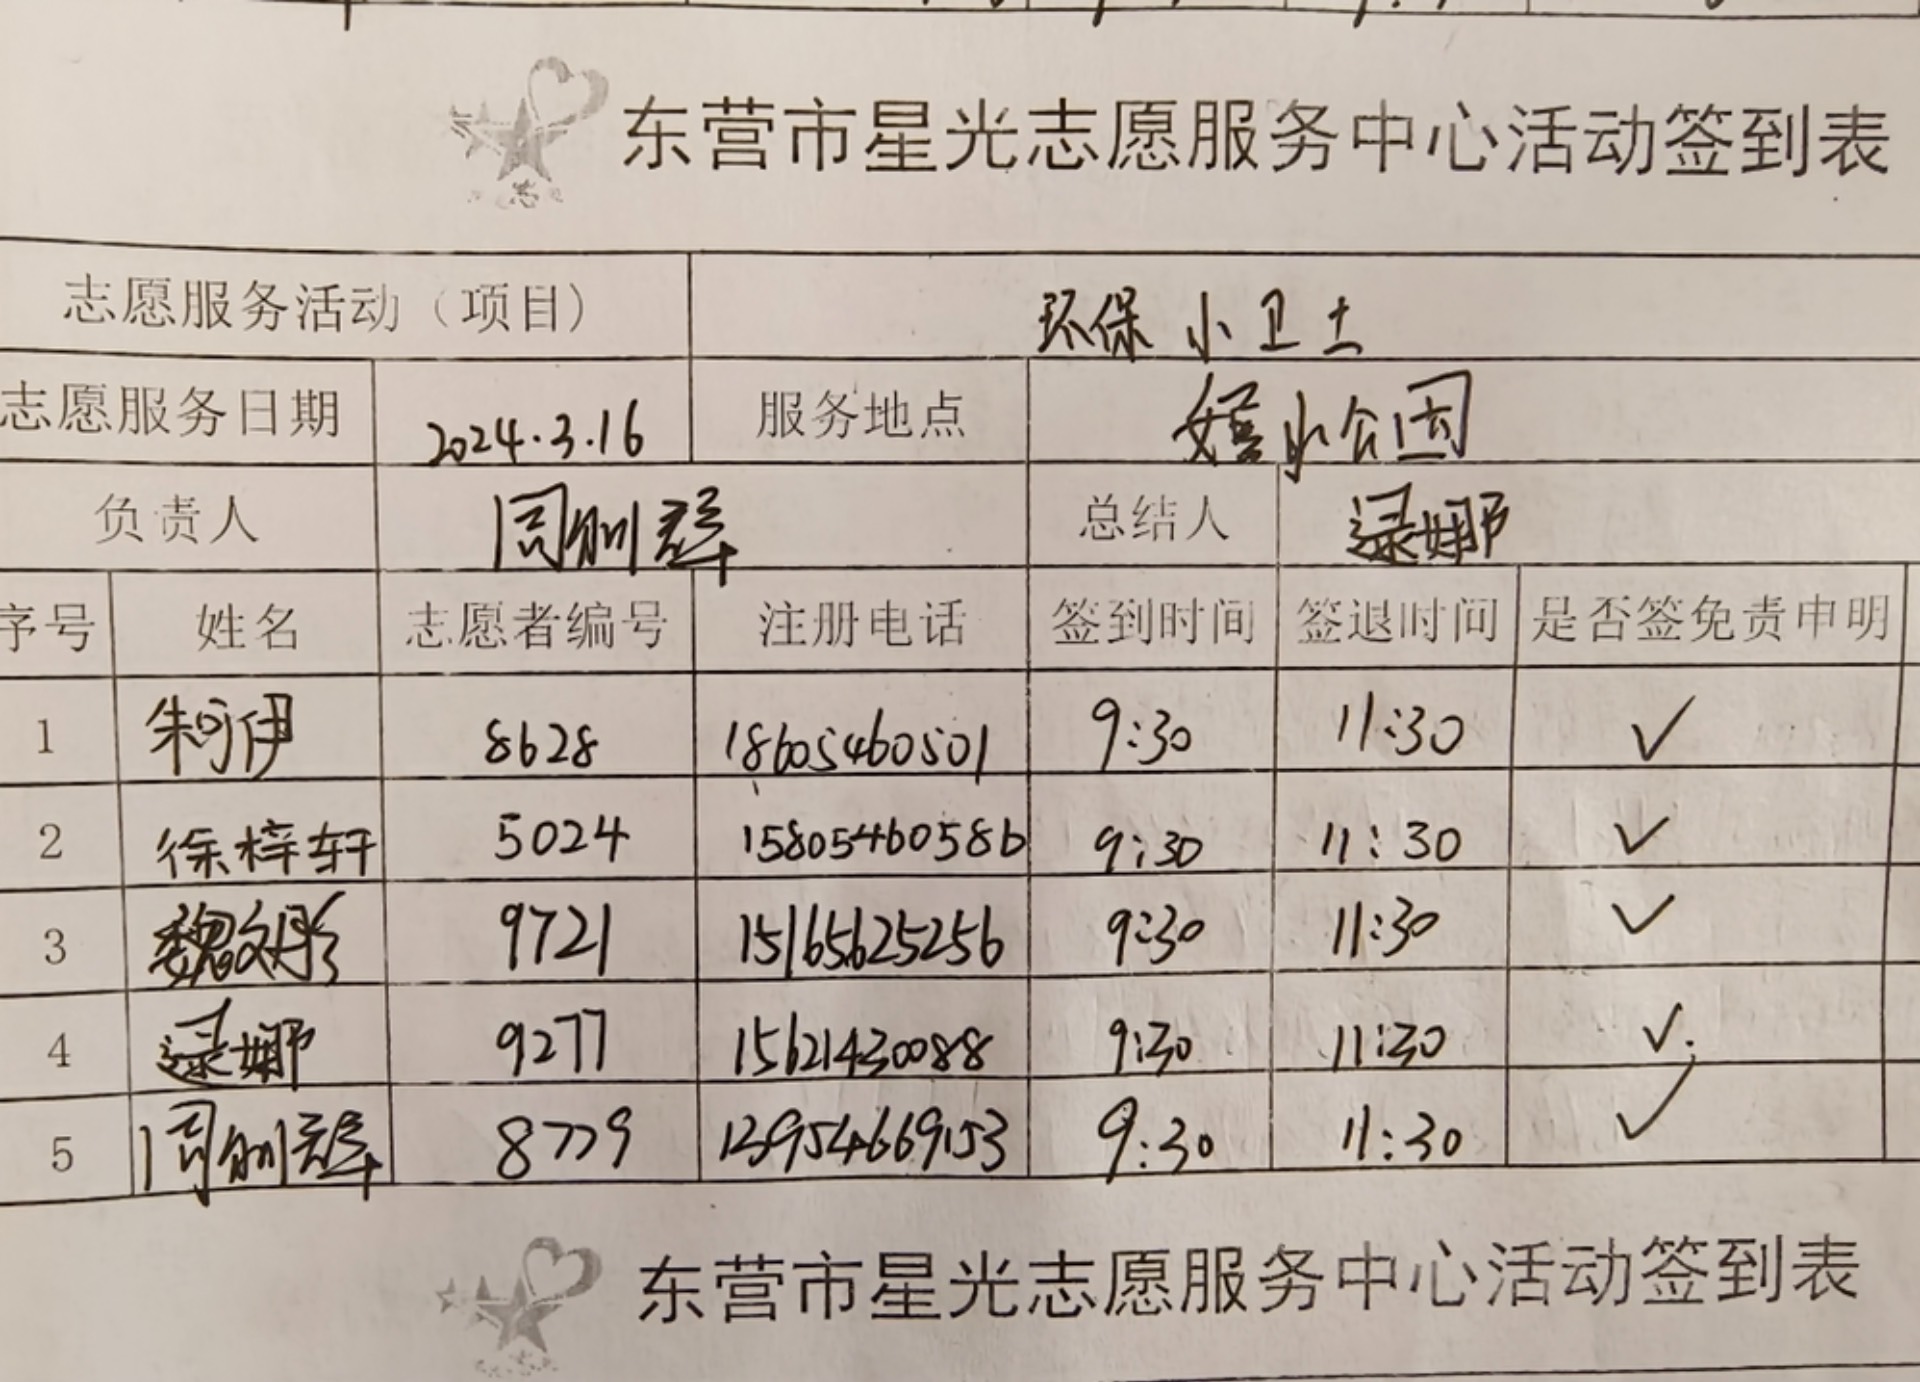 东营市星光志愿服务中心活动签到表
志愿服务活动（项目） 环保小卫士
志愿服务日期 2024.3.16 服务地点 嬉水公园
负责人 周 总结人 逯娜
序号 姓名 志愿者编号 注册电话 签到时间 签退时间 是否签免责申明
1 朱可伊 8628 18605460501 9:30 11:30 ✓
2 徐梓轩 5024 15805460586 9:30 11:30 ✓
3 魏文彤 9721 15165625256 9:30 11:30 ✓
4 逯娜 9277 15621430088 9:30 11:30 ✓
5 周 8779 13954669153 9:30 11:30 ✓
东营市星光志愿服务中心活动签到表